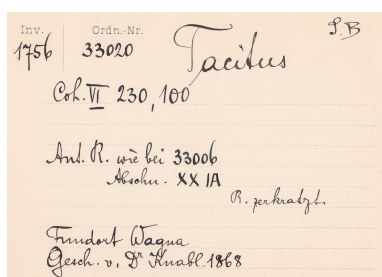 Inv. Ordn.-Nr. S.B
1756 33020 Tacitus
Coh. VI 230, 100
Ant. R. wie bei 33006
Abschn. XXIA
R. zerkratzt.
Fundort Wagna
Gesch. v. Dr Knabl 1868